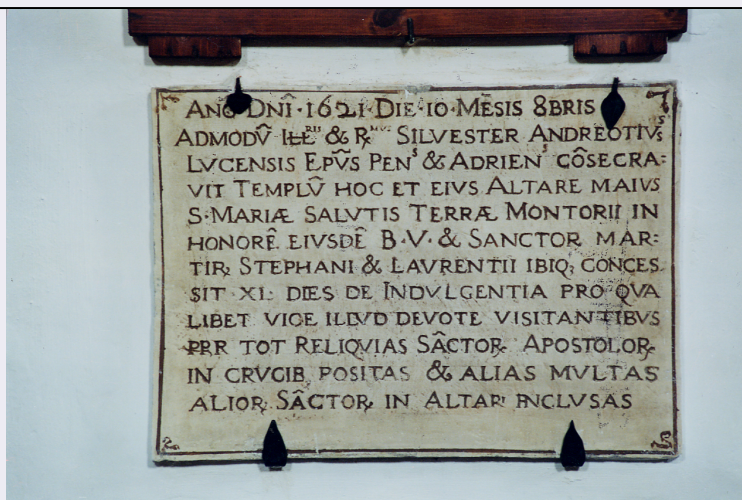 ANO DNĪ · 1621 · DIE · 10 · MĒSIS 8BRIS
ADMODV̂ ILLᴿᴵˢ & R SILVESTER ANDREOTIVS
LVCENSIS EPV̂S PENˢ & ADRIENˢ CÔSECRA:
VIT TEMPLV̂ HOC ET EIVS ALTARE MAIVS
S · MARIÆ SALVTIS TERRÆ MONTORII IN
HONORÊ EIVSDÊ B · V · & SANCTOR MAR:
TIR STEPHANI & LAVRENTII IBIQ; CONCES
SIT · XL DIES DE INDVLGENTIA PRO QVA
LIBET VICE ILLVD DEVOTE VISITANTIBVS
TOT RELIQVIAS SÂCTOR APOSTOLOR
IN CRVCIB POSITAS & ALIAS MVLTAS
ALIOR SÂCTOR IN ALTARI INCLVSAS